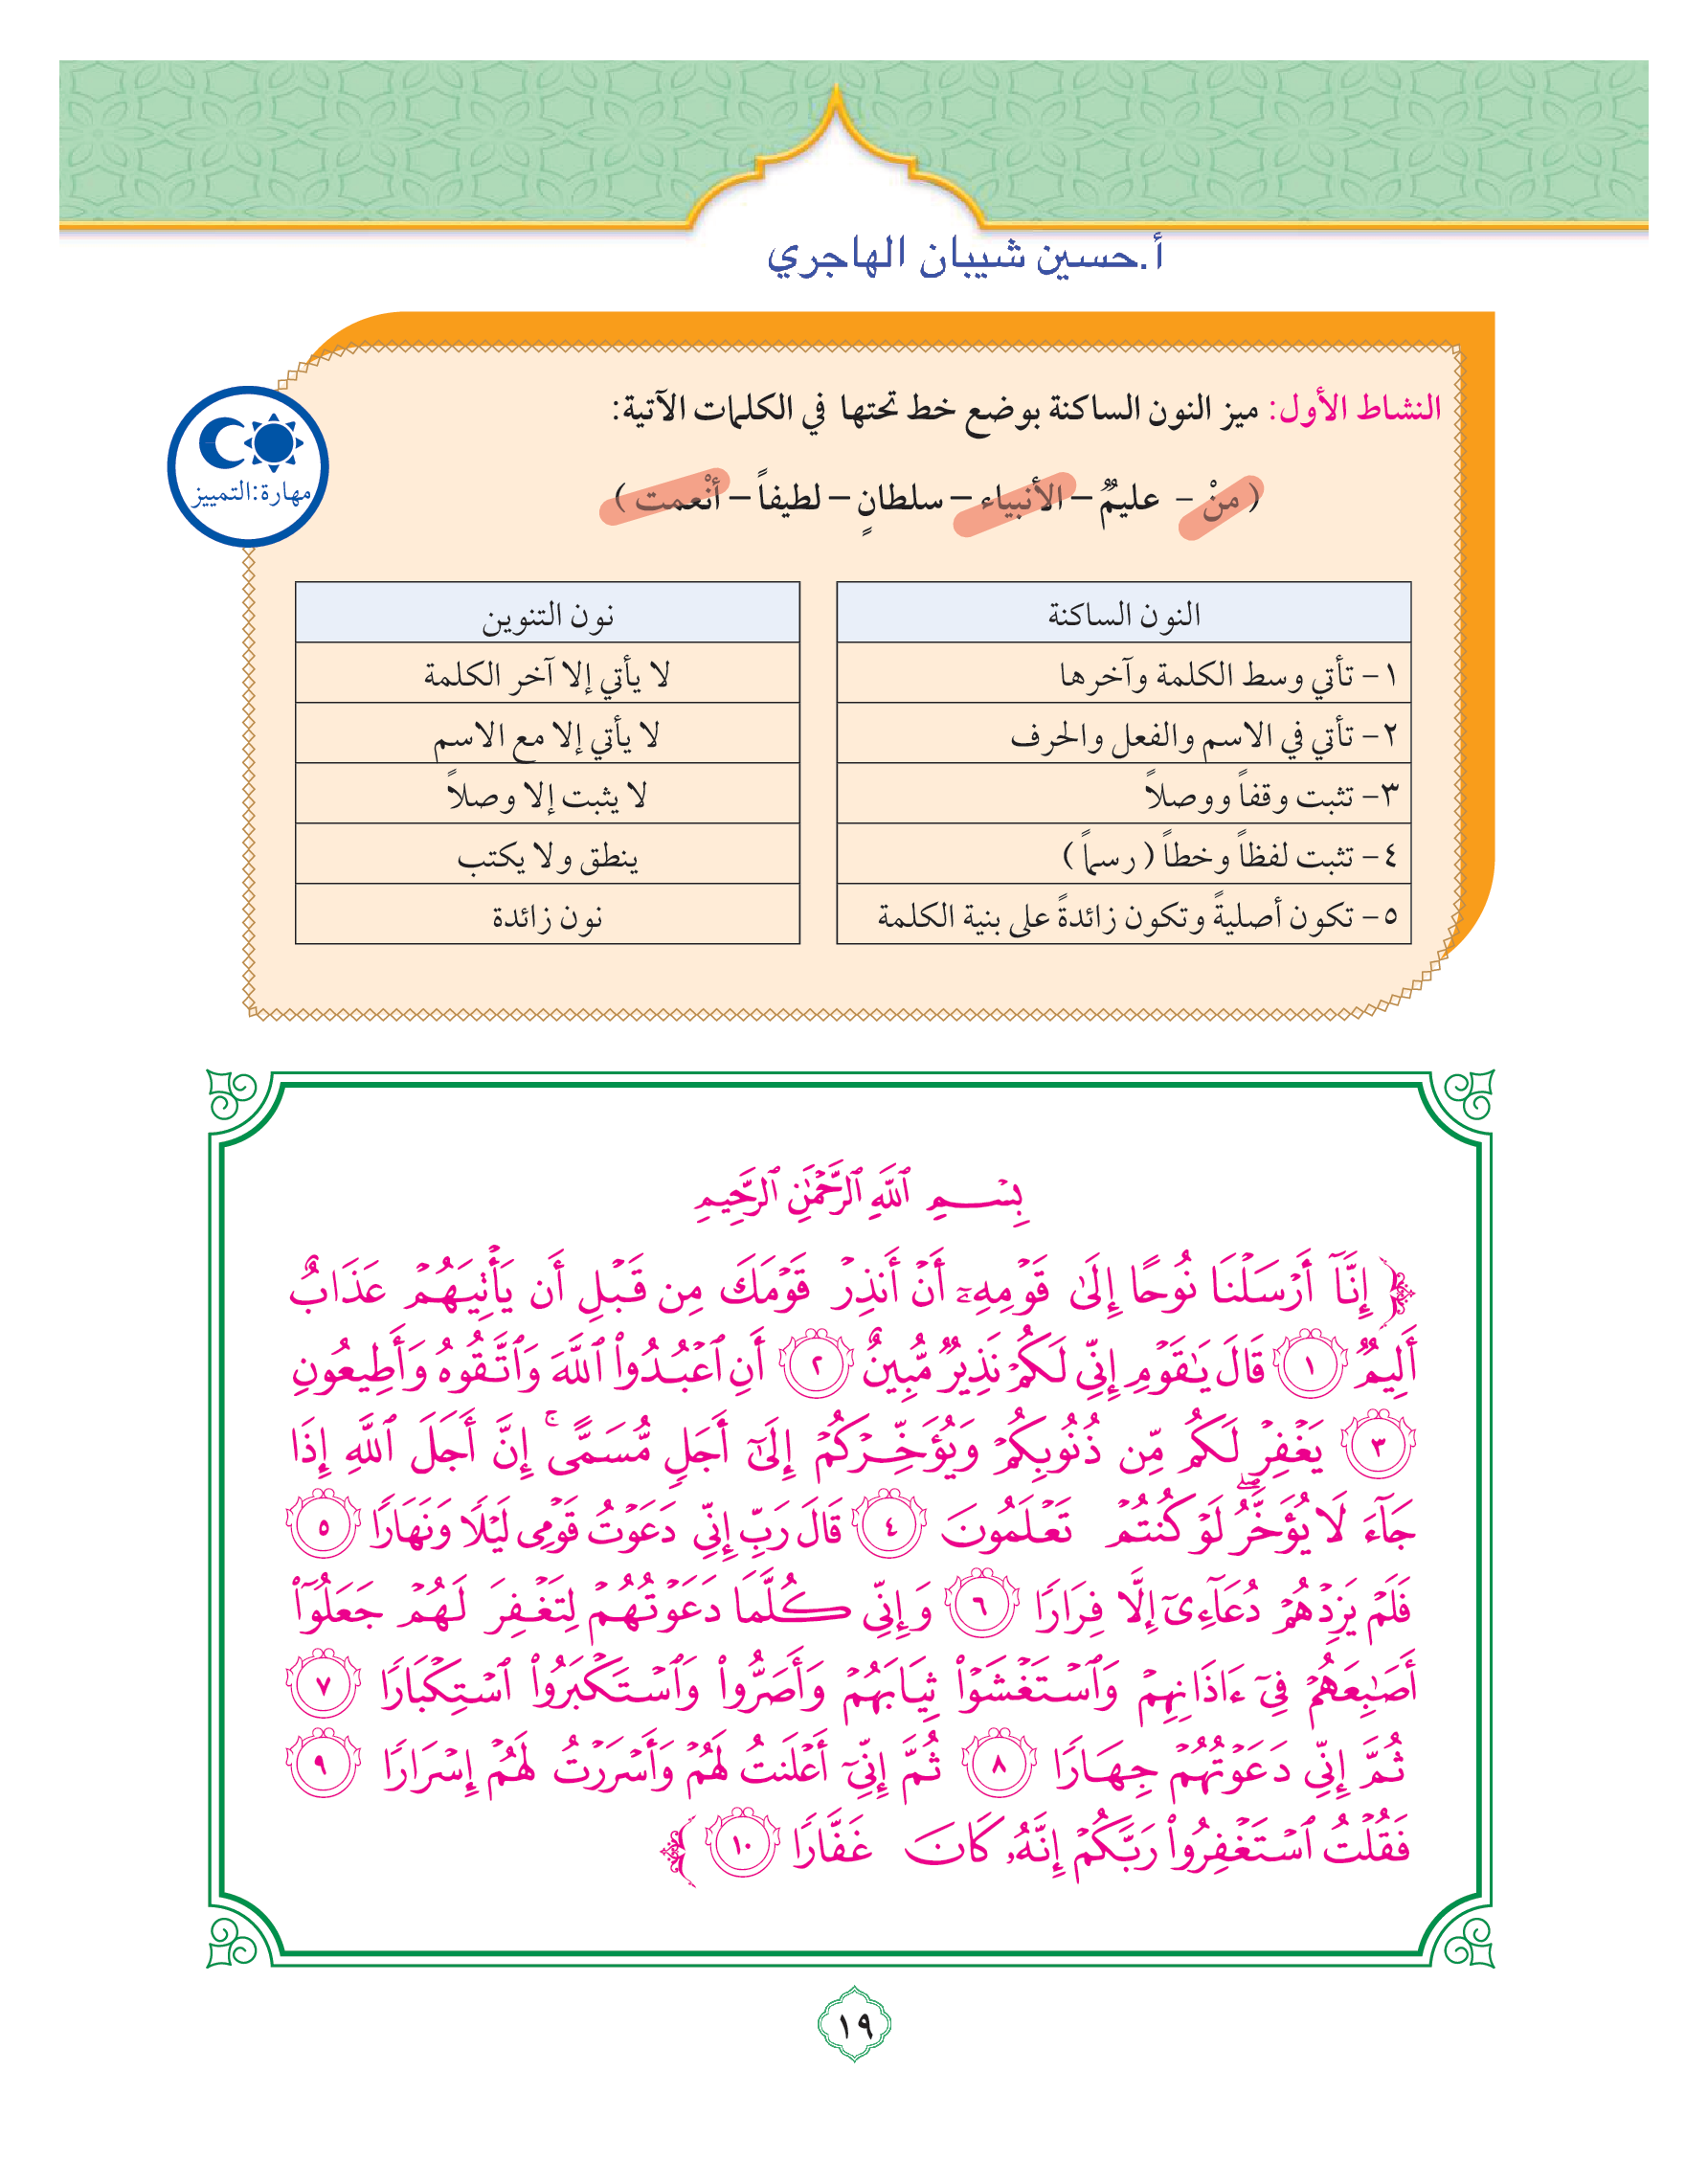 أ.حسين شيبان الهاجري
النشاط الأول: ميز النون الساكنة بوضع خط تحتها في الكلمات الآتية:
مهارة:التمييز
( منْ - عليمٌ – الأنبياء – سلطانٍ – لطيفاً – أنْعمت )
النون الساكنة
نون التنوين
١- تأتي وسط الكلمة وآخرها
لا يأتي إلا آخر الكلمة
٢- تأتي في الاسم والفعل والحرف
لا يأتي إلا مع الاسم
٣- تثبت وقفاً ووصلاً
لا يثبت إلا وصلاً
٤- تثبت لفظاً وخطاً ( رسماً )
ينطق ولا يكتب
٥- تكون أصليةً وتكون زائدةً على بنية الكلمة
نون زائدة
بِسْمِ ٱللَّهِ ٱلرَّحْمَٰنِ ٱلرَّحِيمِ
﴿ إِنَّآ أَرْسَلْنَا نُوحًا إِلَىٰ قَوْمِهِۦٓ أَنْ أَنذِرْ قَوْمَكَ مِن قَبْلِ أَن يَأْتِيَهُمْ عَذَابٌ
أَلِيمٌ ١ قَالَ يَٰقَوْمِ إِنِّى لَكُمْ نَذِيرٌ مُّبِينٌ ٢ أَنِ ٱعْبُدُوا۟ ٱللَّهَ وَٱتَّقُوهُ وَأَطِيعُونِ
٣ يَغْفِرْ لَكُم مِّن ذُنُوبِكُمْ وَيُؤَخِّرْكُمْ إِلَىٰٓ أَجَلٍ مُّسَمًّى ۚ إِنَّ أَجَلَ ٱللَّهِ إِذَا
جَآءَ لَا يُؤَخَّرُ ۖ لَوْ كُنتُمْ تَعْلَمُونَ ٤ قَالَ رَبِّ إِنِّى دَعَوْتُ قَوْمِى لَيْلًا وَنَهَارًا ٥
فَلَمْ يَزِدْهُمْ دُعَآءِىٓ إِلَّا فِرَارًا ٦ وَإِنِّى كُلَّمَا دَعَوْتُهُمْ لِتَغْفِرَ لَهُمْ جَعَلُوٓا۟
أَصَٰبِعَهُمْ فِىٓ ءَاذَانِهِمْ وَٱسْتَغْشَوْا۟ ثِيَابَهُمْ وَأَصَرُّوا۟ وَٱسْتَكْبَرُوا۟ ٱسْتِكْبَارًا ٧
ثُمَّ إِنِّى دَعَوْتُهُمْ جِهَارًا ٨ ثُمَّ إِنِّىٓ أَعْلَنتُ لَهُمْ وَأَسْرَرْتُ لَهُمْ إِسْرَارًا ٩
فَقُلْتُ ٱسْتَغْفِرُوا۟ رَبَّكُمْ إِنَّهُۥ كَانَ غَفَّارًا ١٠ ﴾
١٩